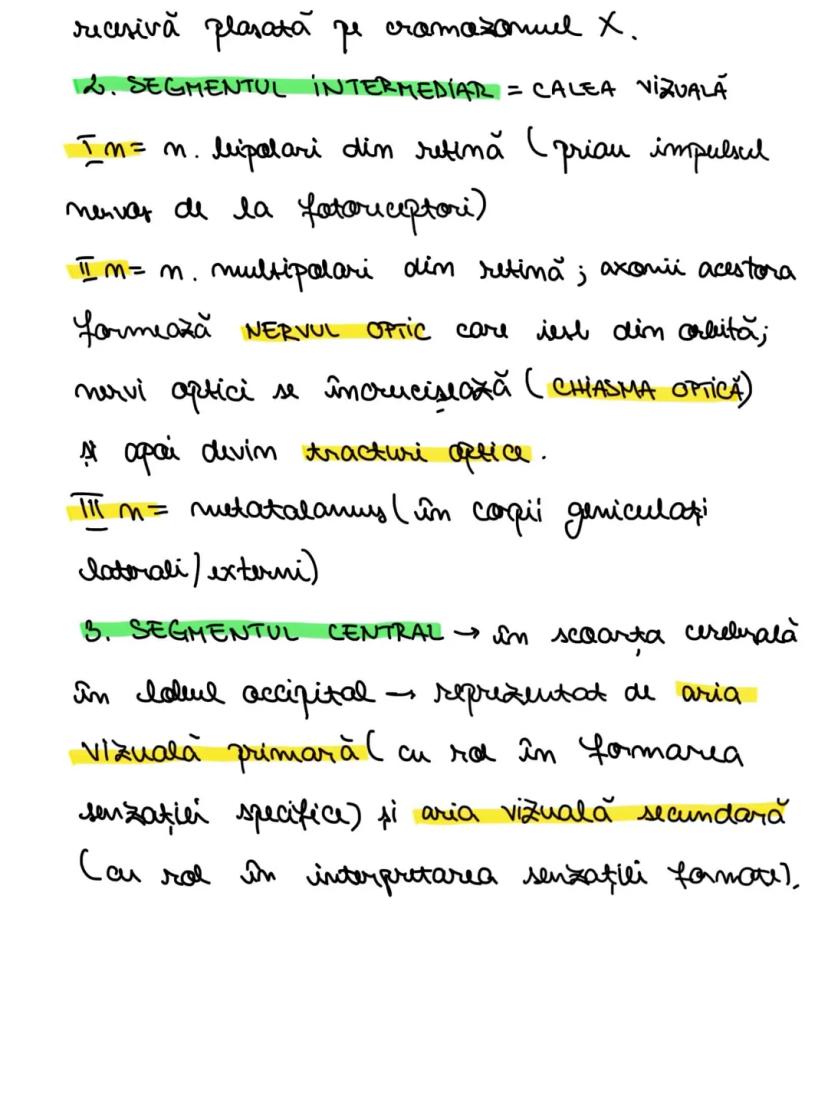 recesivă plasată pe cromozomul X.
2. SEGMENTUL INTERMEDIAR = CALEA VIZUALĂ
I n = n. bipolari din retină (priau impulsul
nervos de la fotoreceptori)
II n = n. multipolari din retină; axonii acestora
formează NERVUL OPTIC care iese din orbită;
nervi optici se încrucișează (CHIASMA OPTICĂ)
și apoi devin tracturi optice.
III n = metatalamus (în corpii geniculați
laterali/externi)
3. SEGMENTUL CENTRAL → în scoarța cerebrală
în lobul occipital → reprezentat de aria
vizuală primară (cu rol în formarea
senzației specifice) și aria vizuală secundară
(cu rol în interpretarea senzației formate).